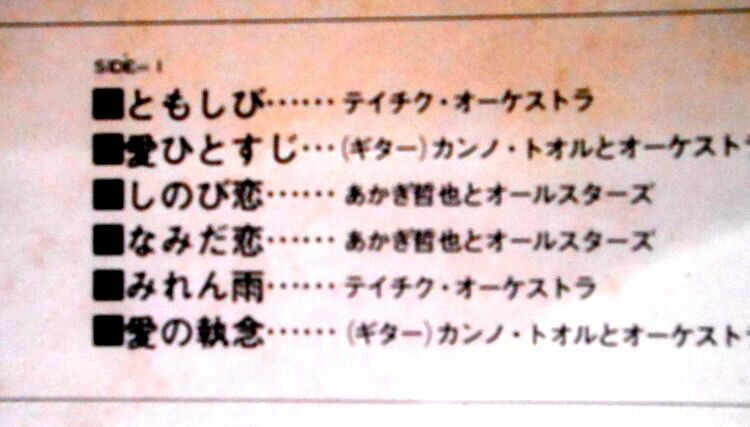 SIDE-1
■ともしび……テイチク・オーケストラ
■愛ひとすじ…(ギター)カンノ・トオルとオーケスト
■しのび恋……あかぎ哲也とオールスターズ
■なみだ恋……あかぎ哲也とオールスターズ
■みれん雨……テイチク・オーケストラ
■愛の執念……(ギター)カンノ・トオルとオーケスト